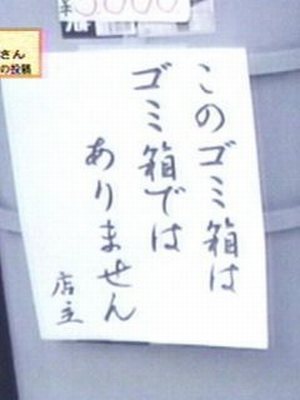 さん
の投稿
このゴミ箱は
ゴミ箱では
ありません
店主